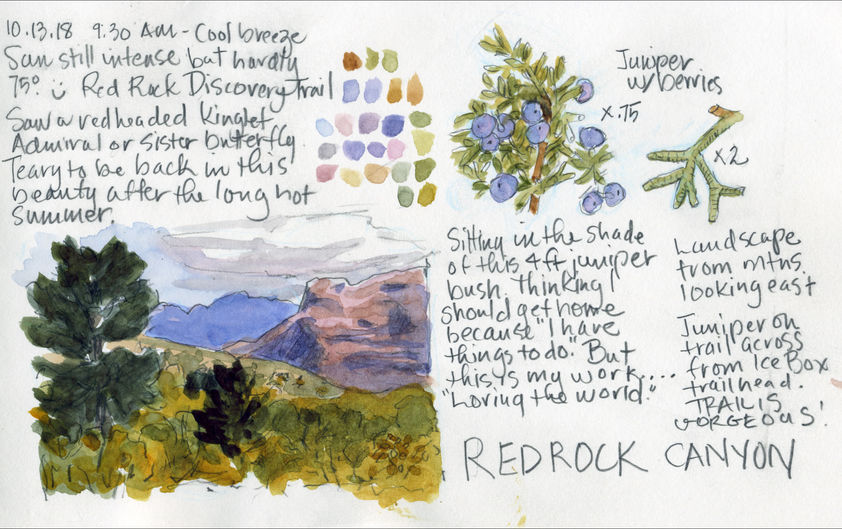 10.13.18 9:30 AM - Cool breeze
Sun still intense but hardly
75° Red Rock Discovery Trail
Saw a redheaded Kinglet,
Admiral or Sister butterfly.
Teary to be back in this
beauty after the long hot
summer.
Juniper
w/berries
x.75
x2
Sitting in the shade
of this 4ft juniper
bush. Thinking I
should get home
because "I have
things to do." But
this is my work....
"Loving the world."
Landscape
from mtns.
looking east
Juniper on
trail across
from Ice Box
trailhead.
TRAIL IS
GORGEOUS!
RED ROCK CANYON